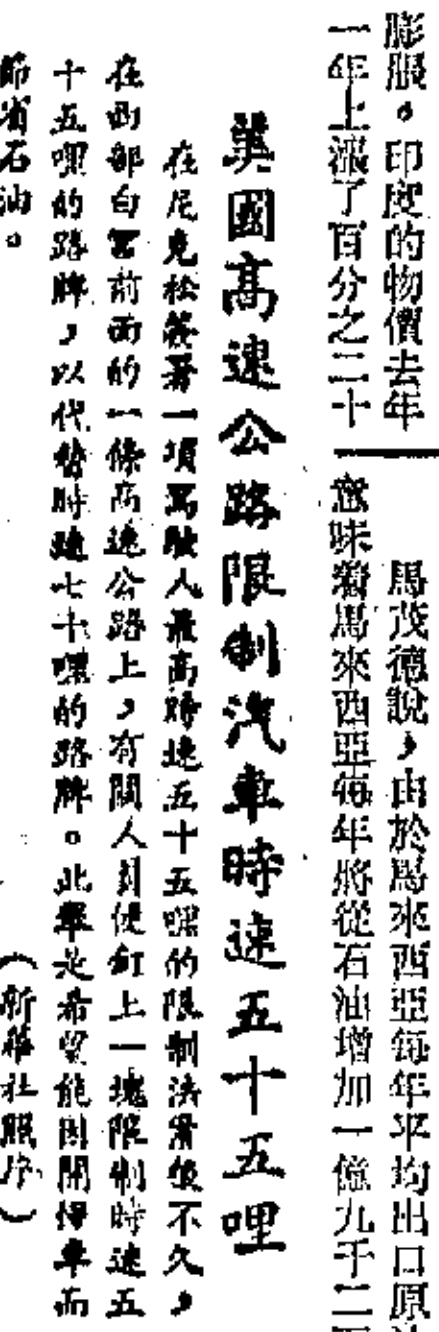 膨脹。印度的物價去年
一年上漲了百分之二十
馬茂德說,由於馬來西亞每年平均出口原
意味着馬來西亞每年將從石油增加一億九千二
美國高速公路限制汽車時速五十五哩
在尼克松簽署一項駕駛人最高時速五十五哩的限制法案後不久,
在西部白宮前面的一條高速公路上,有關人員便釘上一塊限制時速五
十五哩的路牌,以代替時速七十哩的路牌。此舉是希望能因開慢車而
節省石油。
(新華社照片)